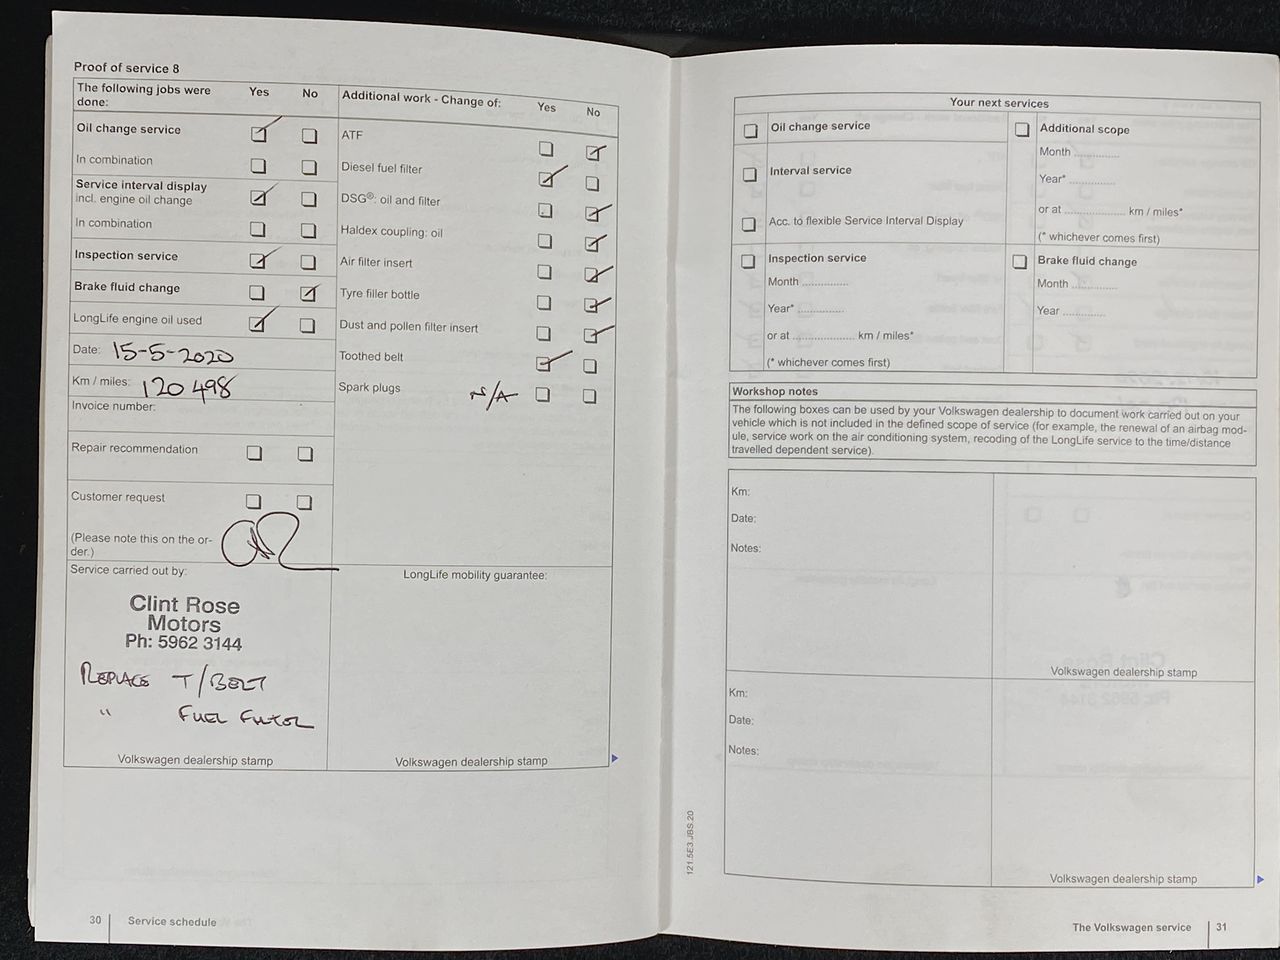 Proof of service 8
The following jobs were done: Yes No
Oil change service
In combination
Service interval display
incl. engine oil change
In combination
Inspection service
Brake fluid change
LongLife engine oil used
Date: 15-5-2020
Km / miles: 120 498
Invoice number:
Repair recommendation
Customer request
(Please note this on the or-
der.)
Service carried out by:
Clint Rose
Motors
Ph: 5962 3144
REPLACE T/BELT
" FUEL FILTER
Volkswagen dealership stamp
Additional work - Change of: Yes No
ATF
Diesel fuel filter
DSG®: oil and filter
Haldex coupling: oil
Air filter insert
Tyre filler bottle
Dust and pollen filter insert
Toothed belt
Spark plugs N/A
LongLife mobility guarantee:
Volkswagen dealership stamp
30 Service schedule
Your next services
Oil change service
Interval service
Acc. to flexible Service Interval Display
Additional scope
Month ..............
Year* ..............
or at .................... km / miles*
(* whichever comes first)
Inspection service
Month ..............
Year* ..............
or at .................... km / miles*
(* whichever comes first)
Brake fluid change
Month ..............
Year ..............
Workshop notes
The following boxes can be used by your Volkswagen dealership to document work carried out on your
vehicle which is not included in the defined scope of service (for example, the renewal of an airbag mod-
ule, service work on the air conditioning system, recoding of the LongLife service to the time/distance
travelled dependent service).
Km:
Date:
Notes:
Volkswagen dealership stamp
Km:
Date:
Notes:
Volkswagen dealership stamp
121.5E3.JBS.20
The Volkswagen service 31